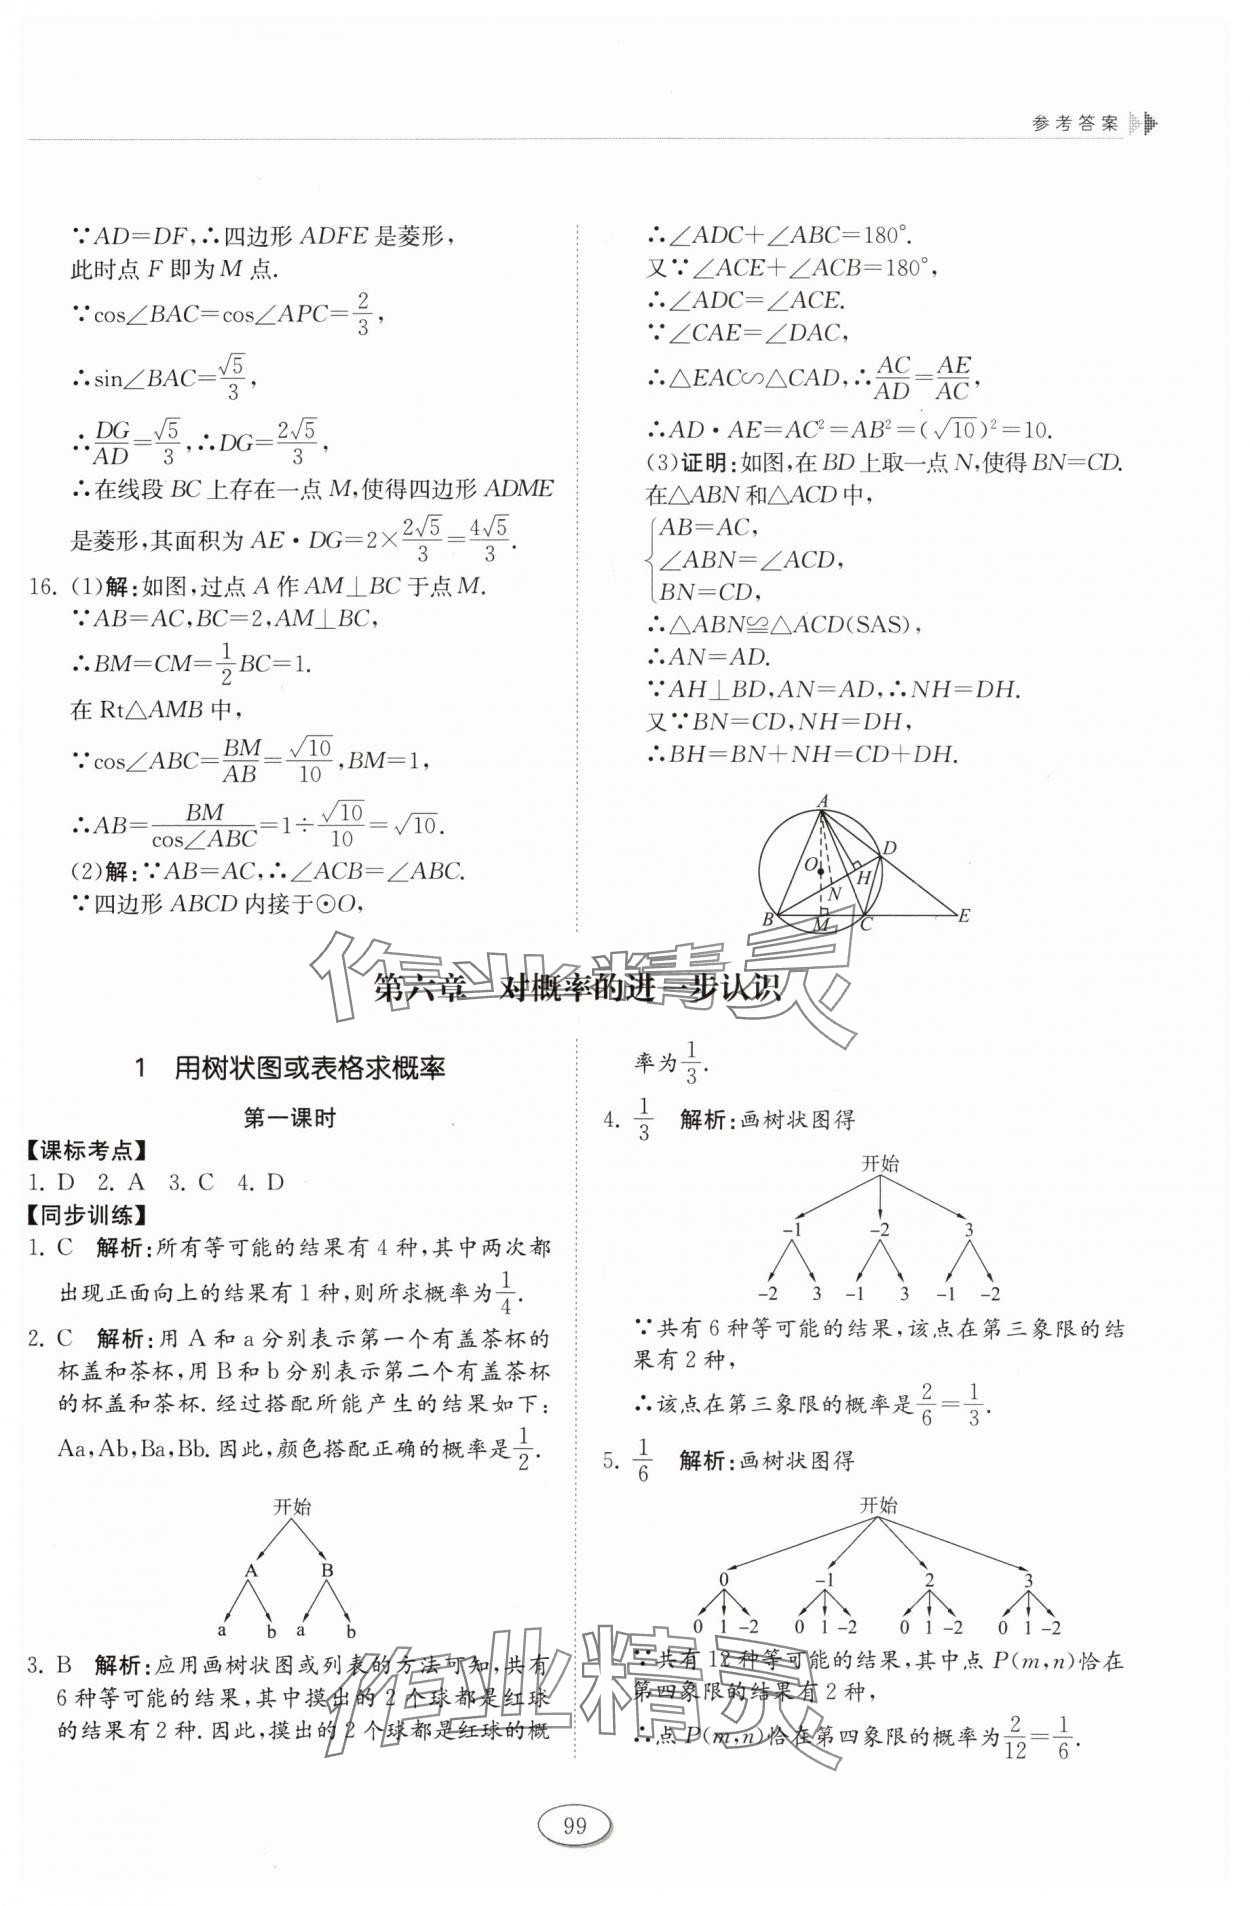 参考答案
∵AD=DF,∴四边形 ADFE 是菱形,
此时点 F 即为 M 点.
∵cos∠BAC=cos∠APC=2/3,
∴sin∠BAC=√5/3,
∴DG/AD=√5/3,∴DG=2√5/3,
∴在线段 BC 上存在一点 M,使得四边形 ADME
是菱形,其面积为 AE·DG=2×2√5/3=4√5/3.
16. (1)解:如图,过点 A 作 AM⊥BC 于点 M.
∵AB=AC,BC=2,AM⊥BC,
∴BM=CM=1/2BC=1.
在 Rt△AMB 中,
∵cos∠ABC=BM/AB=√10/10,BM=1,
∴AB=BM/cos∠ABC=1÷√10/10=√10.
(2)解:∵AB=AC,∴∠ACB=∠ABC.
∵四边形 ABCD 内接于⊙O,
∴∠ADC+∠ABC=180°.
又∵∠ACE+∠ACB=180°,
∴∠ADC=∠ACE.
∵∠CAE=∠DAC,
∴△EAC∽△CAD,∴AC/AD=AE/AC,
∴AD·AE=AC²=AB²=(√10)²=10.
(3)证明:如图,在 BD 上取一点 N,使得 BN=CD.
在△ABN 和△ACD 中,
AB=AC,
∠ABN=∠ACD,
BN=CD,
∴△ABN≌△ACD(SAS),
∴AN=AD.
∵AH⊥BD,AN=AD,∴NH=DH.
又∵BN=CD,NH=DH,
∴BH=BN+NH=CD+DH.
A
D
O
H
N
B M C E
第六章 对概率的进一步认识
作业精灵
1 用树状图或表格求概率
第一课时
【课标考点】
1. D 2. A 3. C 4. D
【同步训练】
1. C 解析:所有等可能的结果有 4 种,其中两次都
出现正面向上的结果有 1 种,则所求概率为1/4.
2. C 解析:用 A 和 a 分别表示第一个有盖茶杯的
杯盖和茶杯,用 B 和 b 分别表示第二个有盖茶杯
的杯盖和茶杯. 经过搭配所能产生的结果如下:
Aa,Ab,Ba,Bb. 因此,颜色搭配正确的概率是1/2.
开始
A B
a b a b
3. B 解析:应用画树状图或列表的方法可知,共有
6 种等可能的结果,其中摸出的 2 个球都是红球
的结果有 2 种. 因此,摸出的 2 个球都是红球的概
率为1/3.
4. 1/3 解析:画树状图得
开始
-1 -2 3
-2 3 -1 3 -1 -2
∵共有 6 种等可能的结果,该点在第三象限的结
果有 2 种,
∴该点在第三象限的概率是2/6=1/3.
5. 1/6 解析:画树状图得
开始
0 -1 2 3
0 1 -2 0 1 -2 0 1 -2 0 1 -2
∵共有 12 种等可能的结果,其中点 P(m,n)恰在
第四象限的结果有 2 种,
∴点 P(m,n)恰在第四象限的概率为2/12=1/6.
作业精灵
99